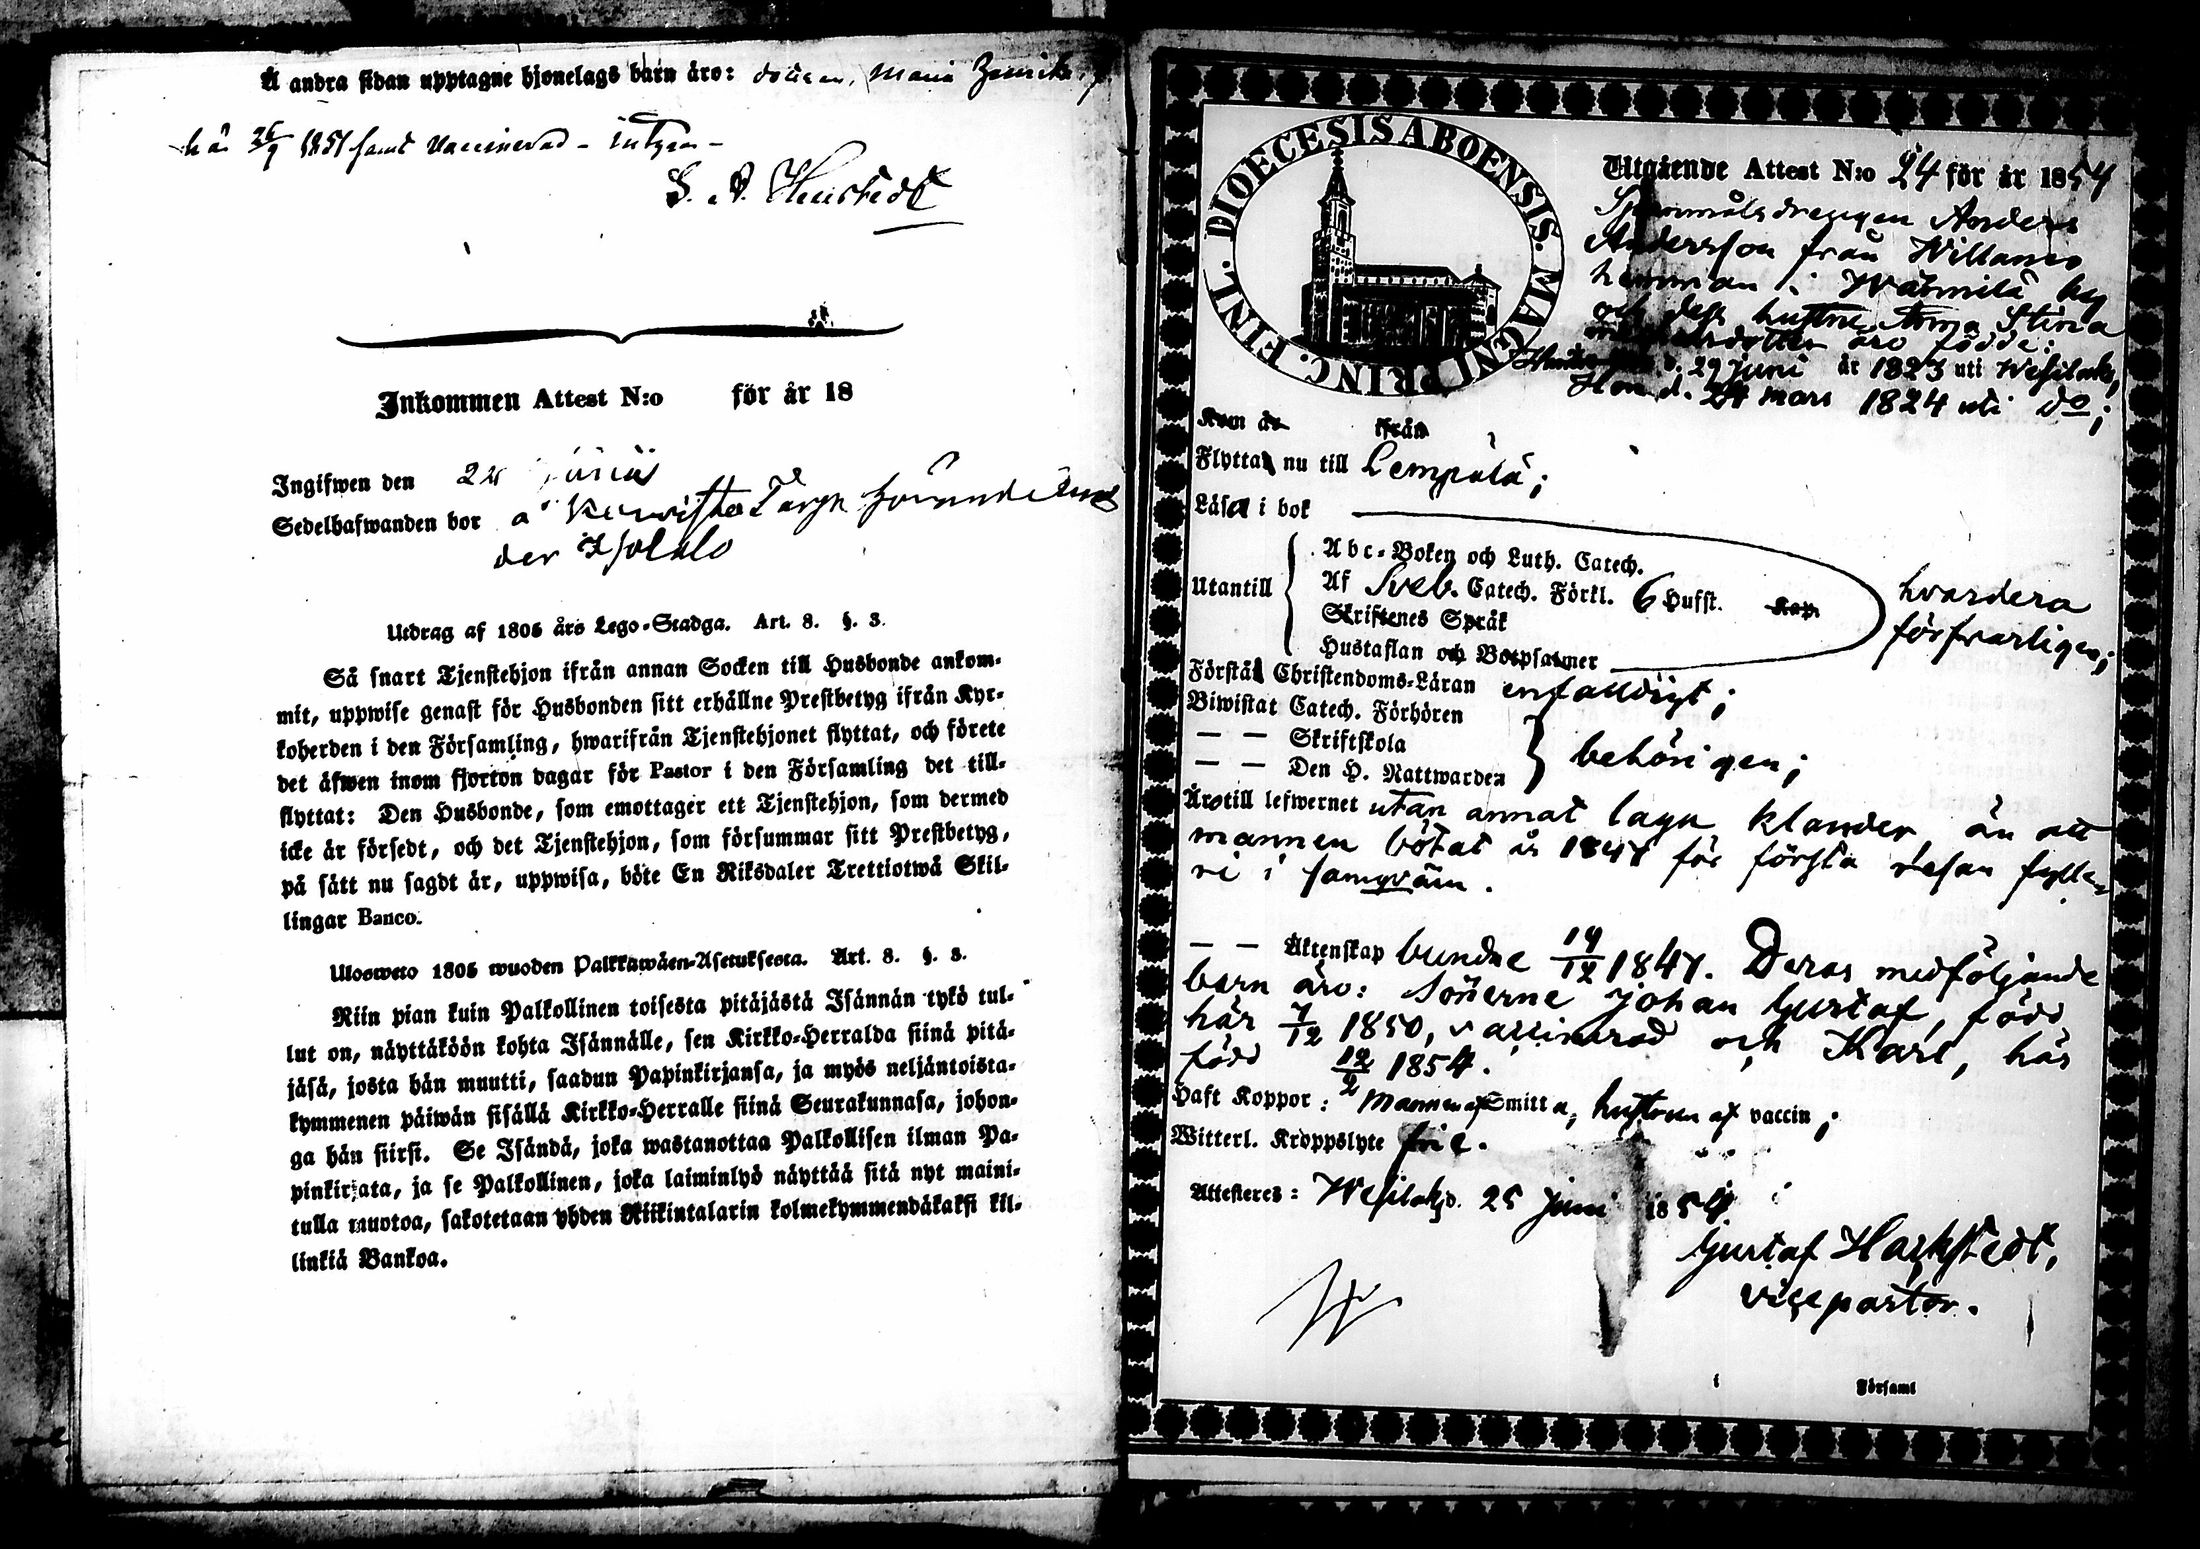 Å andra sidan upptagne hjonelags barn äro: Maria
1851 samt vaccinerad
Inkommen Attest N:o för år 18
Ingifwen den
Sedelhafwanden bor å
der
Utdrag af 1805 års Lego-Stadga. Art. 8. §. 3.
Så snart Tjenstehjon ifrån annan Socken till Husbonde ankom-
mit, uppwise genast för Husbonden sitt erhållne Prestbetyg ifrån Kyr-
koherden i den Församling, hwarifrån Tjenstehjonet flyttat, och förete
det äfwen inom fjorton dagar för Pastor i den Församling det till-
flyttat: Den Husbonde, som emottager ett Tjenstehjon, som dermed
icke är försedt, och det Tjenstehjon, som försummar sitt Prestbetyg,
på sätt nu sagdt är, uppwisa, böte En Riksdaler Trettiotwå Skil-
lingar Banco.
Ulosweto 1805 wuoden Palkkawäen-Asetuksesta. Art. 8. §. 3.
Niin pian kuin Palkollinen toisesta pitäjästä Isännän tykö tul-
lut on, näyttäköön kohta Isännälle, sen Kirkko-Herralda siinä pitä-
jäsä, josta hän muutti, saadun Papinkirjansa, ja myös neljäntoista-
kymmenen päiwän sisällä Kirkko-Herralle siinä Seurakunnasa, johon-
ga hän siirsi. Se Isändä, joka wastanottaa Palkollisen ilman Pa-
pinkirjata, ja se Palkollinen, joka laiminlyö näyttää sitä nyt maini-
tulla muotoa, sakotetaan yhden Riikintalarin kolmekymmendäkaksi kil-
linkiä Bankoa.
DIOECESIS ABOENSIS. MAGNI PRINC. FINL.
Utgående Attest N:o 24 för år 1854
Anders
Andersson från Willamo
hemman i by
och dess hustru Anna Stina
äro födde:
d. 29 juni år 1823 uti Wesilaks,
Hon d. 24 mars 1824 uti do;
Kom år ifrån
Flytta nu till Lempälä;
Läsa i bok
Abc-Boken och Luth. Catech.
Utantill Af Sveb. Catech. Förkl. 6 Hufst. Kap. hvardera
Skriftenes Språk försvarligen;
Hustaflan och Botpsalmer
Förstå Christendoms-Läran enfaldigt;
Biwistat Catech. Förhören
— — Skriftskola behörigen;
— — Den H. Nattwarden
Äro till lefwernet utan annat lagn klander, än att
mannen bötat år 1847 för första resan fylle-
ri i samqväm.
— — Äktenskap bundne 19/12 1847. Deras medföljande
barn äro: Sönerne Johan Gustaf, född
här 7/12 1850, vaccinerad och Karl, här
född 12/2 1854.
Haft Koppor: Mannen af Smitta, hustrun af vaccin;
Witterl. Kroppslyte frie.
Attesteres: Wesilaks d. 25 Juni 1854
Gustaf
vicepastor.
i Församl